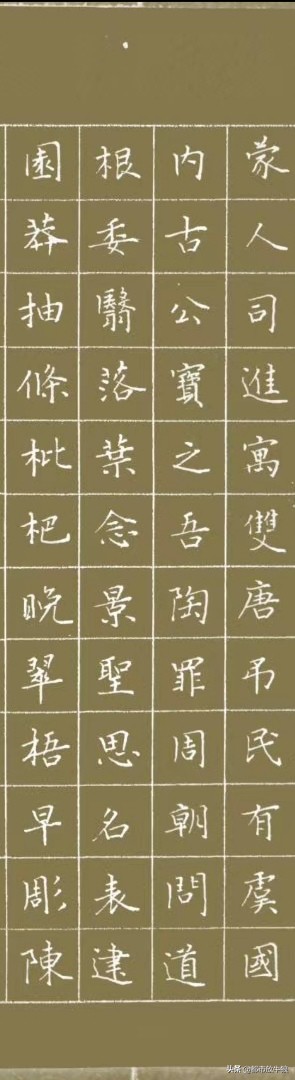 蒙人司進寓雙唐弔民有虞國
内古公寶之吾陶罪周朝問道
根委翳落葉念景聖思名表建
園莽抽條枇杷晚翠梧早彫陳
头条 @都市放牛娃